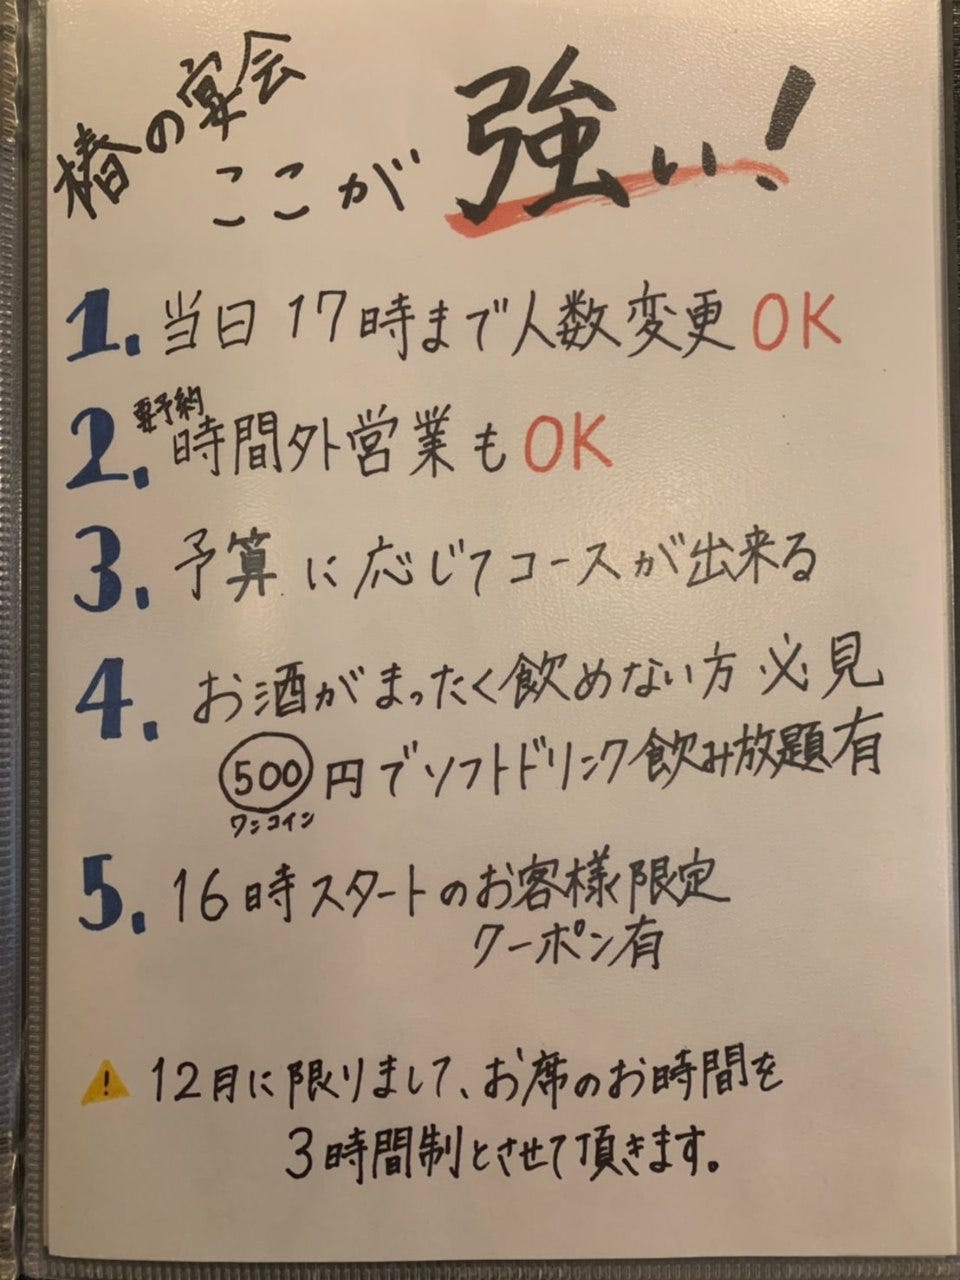 椿の宴会
ここが強い!
1. 当日17時まで人数変更OK
要予約
2. 時間外営業もOK
3. 予算に応じてコースが出来る
4. お酒がまったく飲めない方必見
500円でソフトドリンク飲み放題有
ワンコイン
5. 16時スタートのお客様限定
クーポン有
⚠ 12月に限りまして、お席のお時間を
3時間制とさせて頂きます。